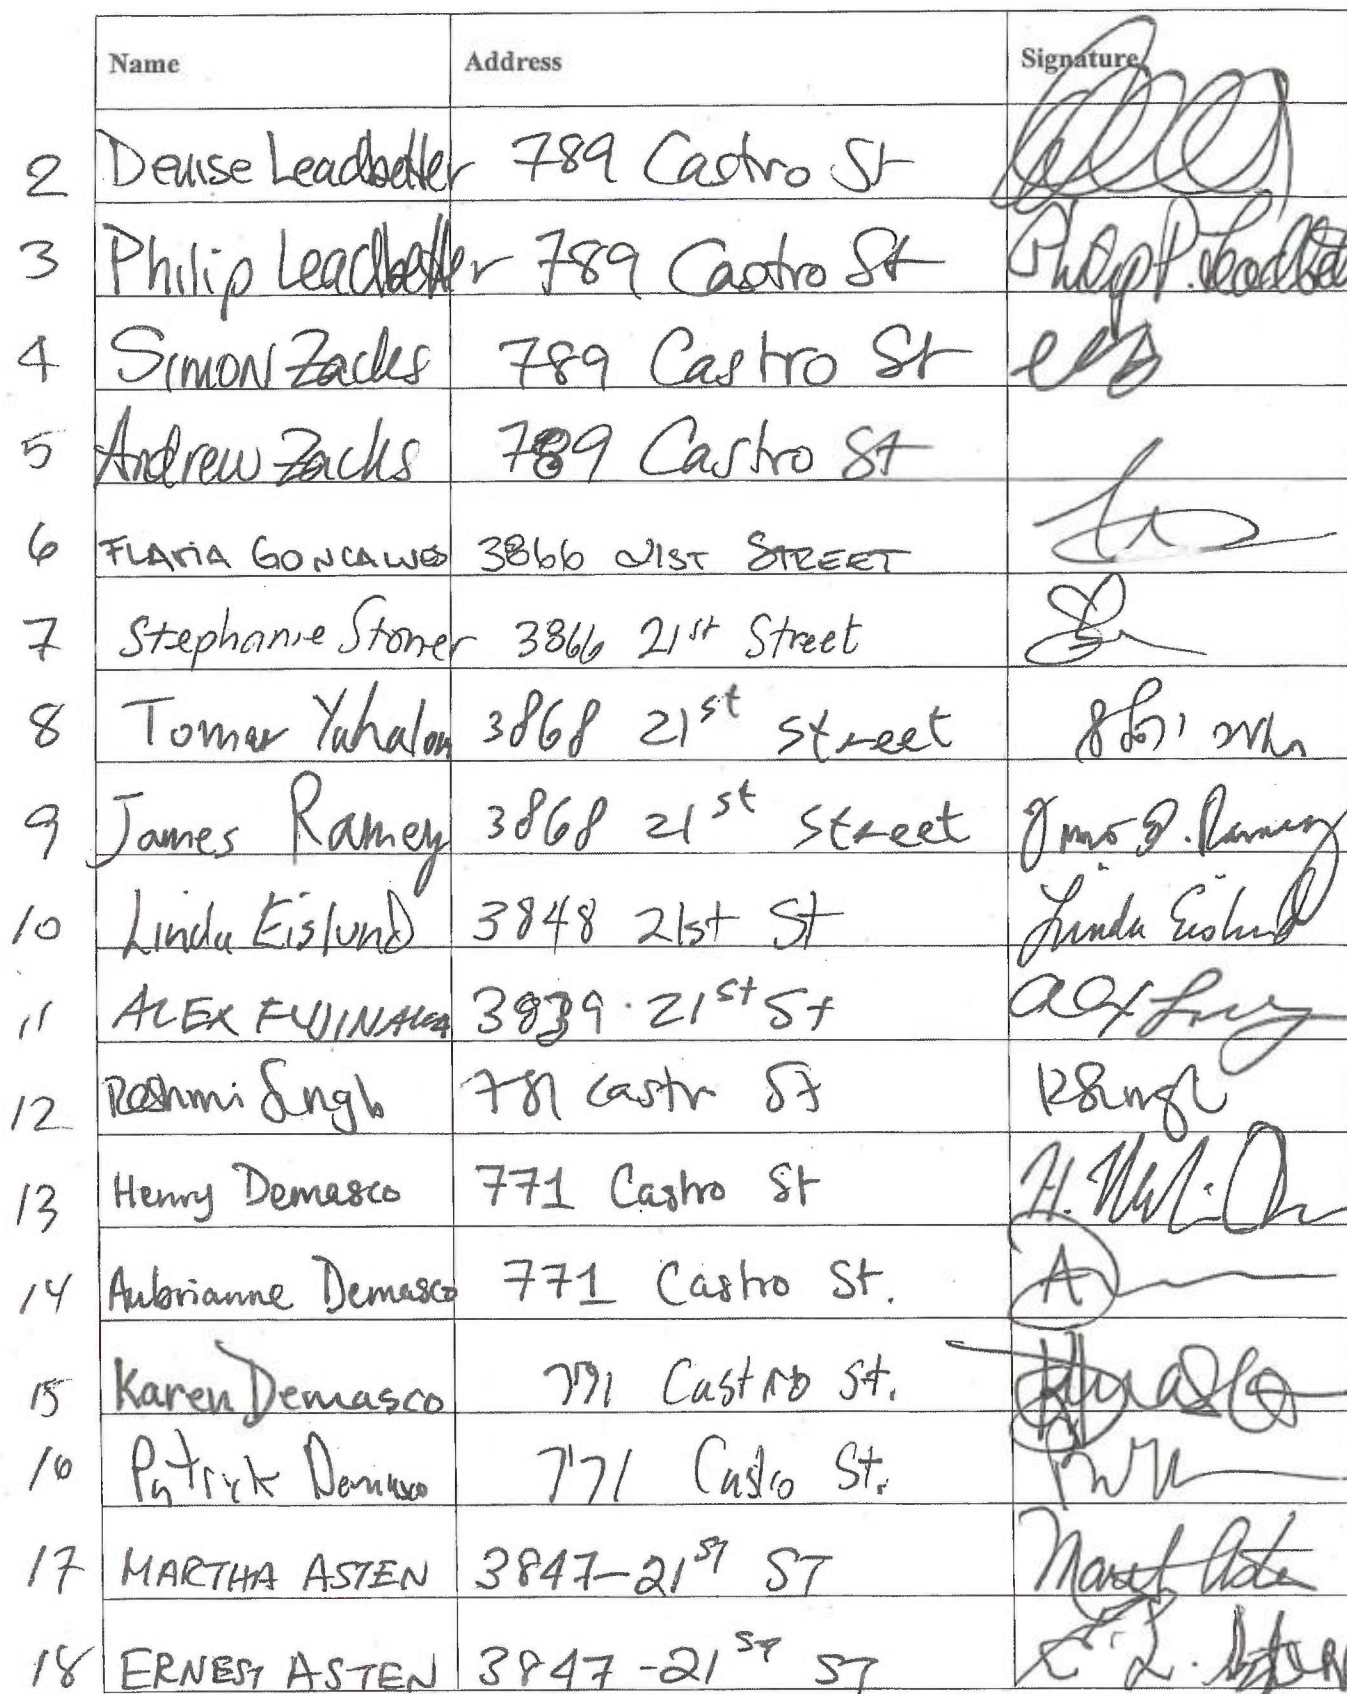 Name Address Signature
2 Denise Leadbetter 789 Castro St
3 Philip Leadbetter 789 Castro St Philip P. Leadbett
4 Simon Zacks 789 Castro St
5 Andrew Zacks 789 Castro St
6 FLAVIA GONCALVES 3866 21ST STREET
7 Stephanie Stoner 3866 21st Street
8 Tomer Yahalom 3868 21st street
9 James Ramey 3868 21st street
10 Linda Eislund 3848 21st St Linda Eislund
11 ALEX 3839 21st St Alex
12 Singh 781 castro St RSingh
13 Henry Demasco 771 Castro St H.
14 Aubrianne Demasco 771 Castro St. A
15 Karen Demasco 771 Castro St.
16 Patrick Demasco 771 Castro St.
17 MARTHA ASTEN 3847-21ST ST Asten
18 ERNEST ASTEN 3847-21ST ST E. L. Asten